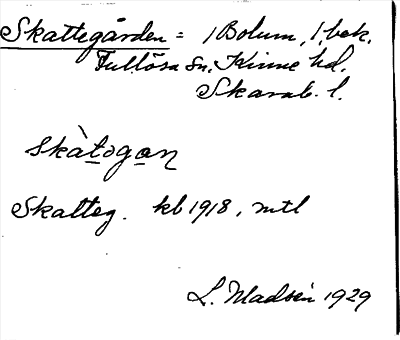 Skattegården = 1 Bolum, 1, bek.
Fullösa sn. Kinne hd.
Skarab. l.
skàtogan
Skatteg. kb 1918, mtl
L. Madsén 1929